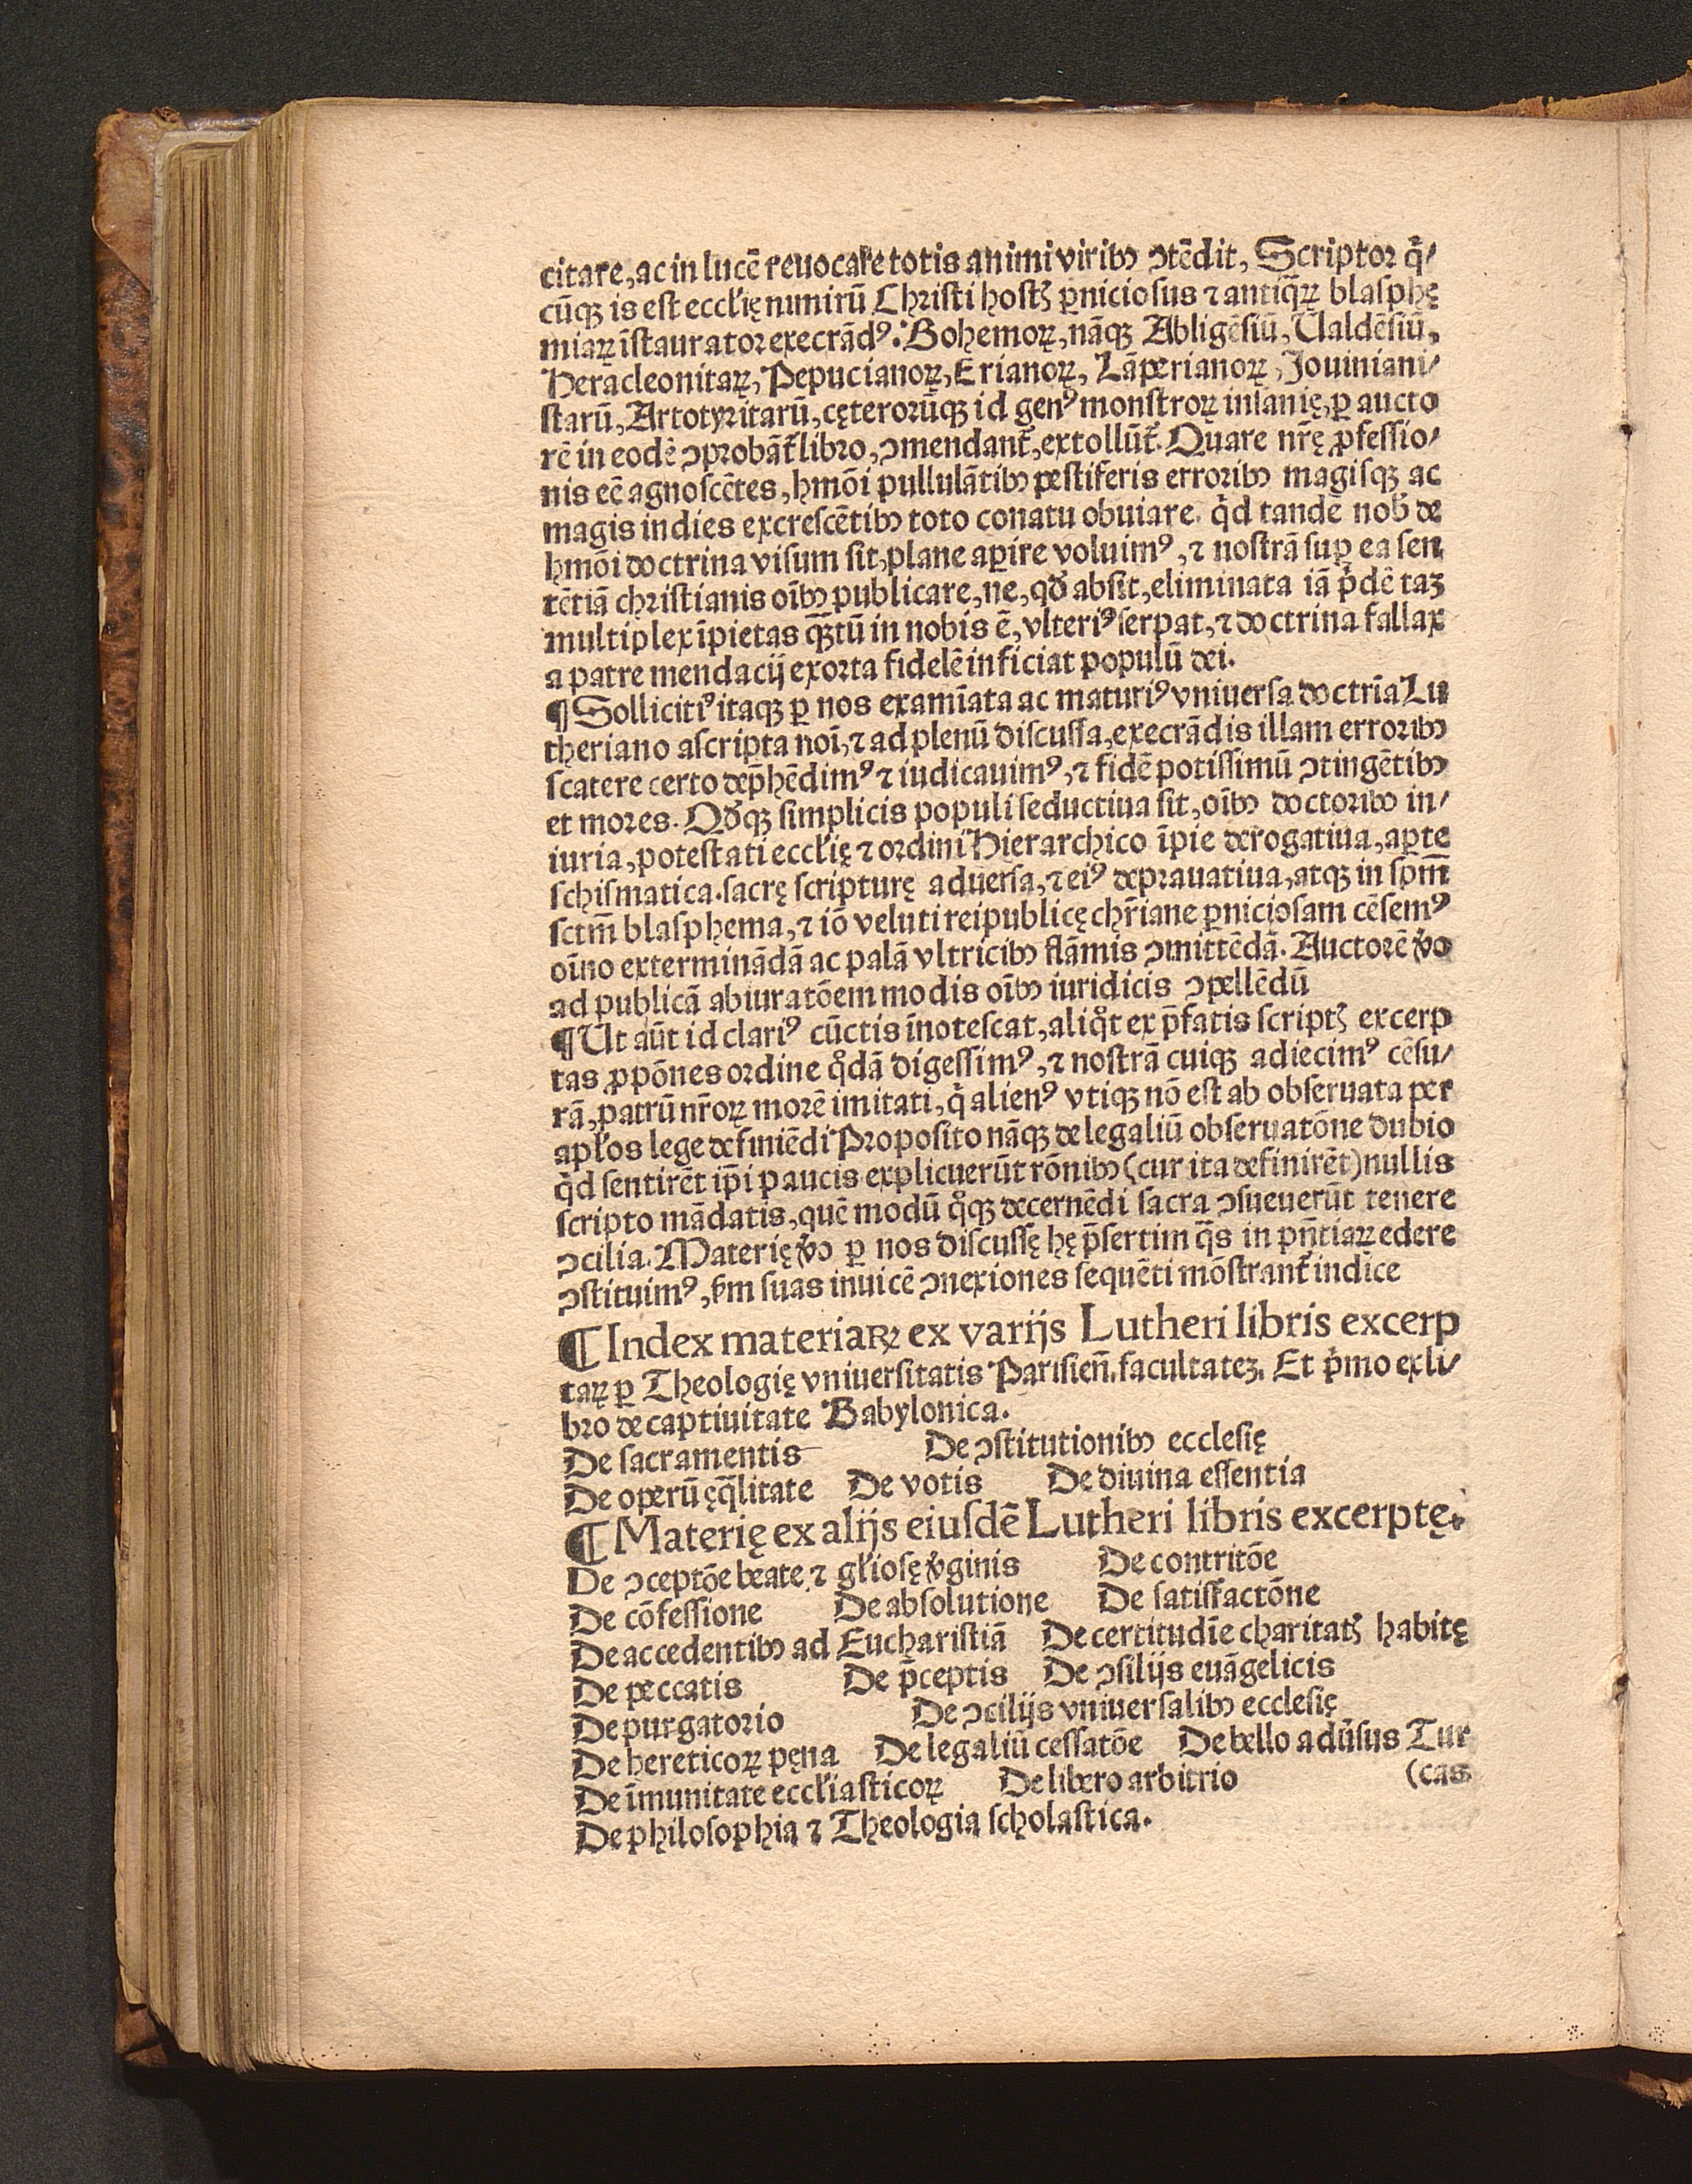 citare, ac in lucē reuocare totis animi viribꝫ ↄtēdit, Scriptor q̇/
cūqꝫ is est eccl'ię nimirū Christi hostꝭ ꝑniciosus ⁊ antiq̄rꝝ blasphę
miaꝝ īstaurator execrādꝰ. Bohemoꝝ, nāqꝫ Abligēsiū, Ualdēsiū,
Heracleonitaꝝ, Pepucianoꝝ, Erianoꝝ, Lāperianoꝝ, Jouiniani/
starū, Artotyritarū, cęterorūqꝫ id genꝰ monstroꝝ insanię, ꝑ aucto
rē in eodē ↄprobāt᷑ libro, ↄmendant᷑, extollūt᷑. Quare nr̄ę ꝓfessio/
nis eē agnoscētes, hmōi pullulātibꝫ pestiferis erroribꝫ magisqꝫ ac
magis indies excrescētibꝫ toto conatu obuiare. q̇d tandē nob̓ de
hmōi doctrina visum sit, plane aꝑire voluimꝰ, ⁊ nostrā suꝑ ea sen
tētiā christianis oībꝫ publicare, ne, qđ absit, eliminata iā p̓dē taꝫ
multiplex īpietas qꝫ̄tū in nobis ē, vlteriꝰ serpat, ⁊ doctrina fallax
a patre mendacij exorta fidelē inficiat populū dei.
¶ Sollicitiꝰ itaqꝫ ꝑ nos examīata ac maturiꝰ vniuersa doctrīa Lu
theriano ascripta noī, ⁊ ad plenū discussa, execrādis illam erroribꝫ
scatere certo dep̄hēdimꝰ ⁊ iudicauimꝰ, ⁊ fidē potissimū ↄtingētibꝫ
et mores. Qđqꝫ simplicis populi seductiua sit, oībꝫ doctoribꝫ in/
iuria, potestati eccl'ię ⁊ ordini Hierarchico īpie derogatiua, aꝑte
schismatica. sacrę scripturę aduersa, ⁊ eiꝰ deprauatiua, atqꝫ in spm̄
sctm̄ blasphema, ⁊ iō veluti reipublicę chr̄iane ꝑniciosam cēsemꝰ
oīno exterminādā ac palā vltricibꝫ flāmis ↄmittēdā. Auctorē v̓o
ad publicā abiuratōem modis oībꝫ iuridicis ↄpellēdū
¶ Ut aūt id clariꝰ cūctis īnotescat, aliq̊t ex p̄fatis scriptꝭ excerp
tas ꝓpōnes ordine q̊dā digessimꝰ, ⁊ nostrā cuiqꝫ adiecimꝰ cēsu/
rā, patrū nr̄oꝝ morē imitati, q̇ alienꝰ vtiqꝫ nō est ab obseruata per
apl'os lege definiēdi Proposito nāqꝫ de legaliū obseruatōne dubio
q̇d sentirēt ip̄i paucis explicuerūt rōnibꝫ (cur ita definirēt) nullis
scripto mādatis, quē modū q̊qꝫ decernēdi sacra ↄsueuerūt tenere
ↄcilia. Materię v̓o ꝑ nos discussę hę p̄sertim q̄s in pn̄tiaꝝ edere
ↄstituimꝰ, ẜm suas inuicē ↄnexiones sequēti mōstrant᷑ indice
¶ Index materiaꝝ ex varijs Lutheri libris excerp
taꝝ ꝑ Theologię vniuersitatis Parisień. facultateꝫ. Et p̓mo ex li/
bro de captiuitate Babylonica.
De sacramentis De ↄstitutionibꝫ ecclesię
De operū ęq̄litate De votis De diuina essentia
¶ Materię ex alijs eiusdē Lutheri libris excerptę.
De ↄceptōe beate ⁊ gl'iosę v̓ginis De contritōe
De cōfessione De absolutione De satisfactōne
De accedentibꝫ ad Eucharistiā De certitudīe charitatꝭ habitę
De peccatis De p̄ceptis De ↄsilijs euāgelicis
De purgatorio De ↄcilijs vniuersalibꝫ ecclesię
De hereticoꝝ pęna De legaliū cessatōe De bello adūsus Tur
De īmunitate eccl'iasticoꝝ De libero arbitrio (cas
De philosophia ⁊ Theologia scholastica.